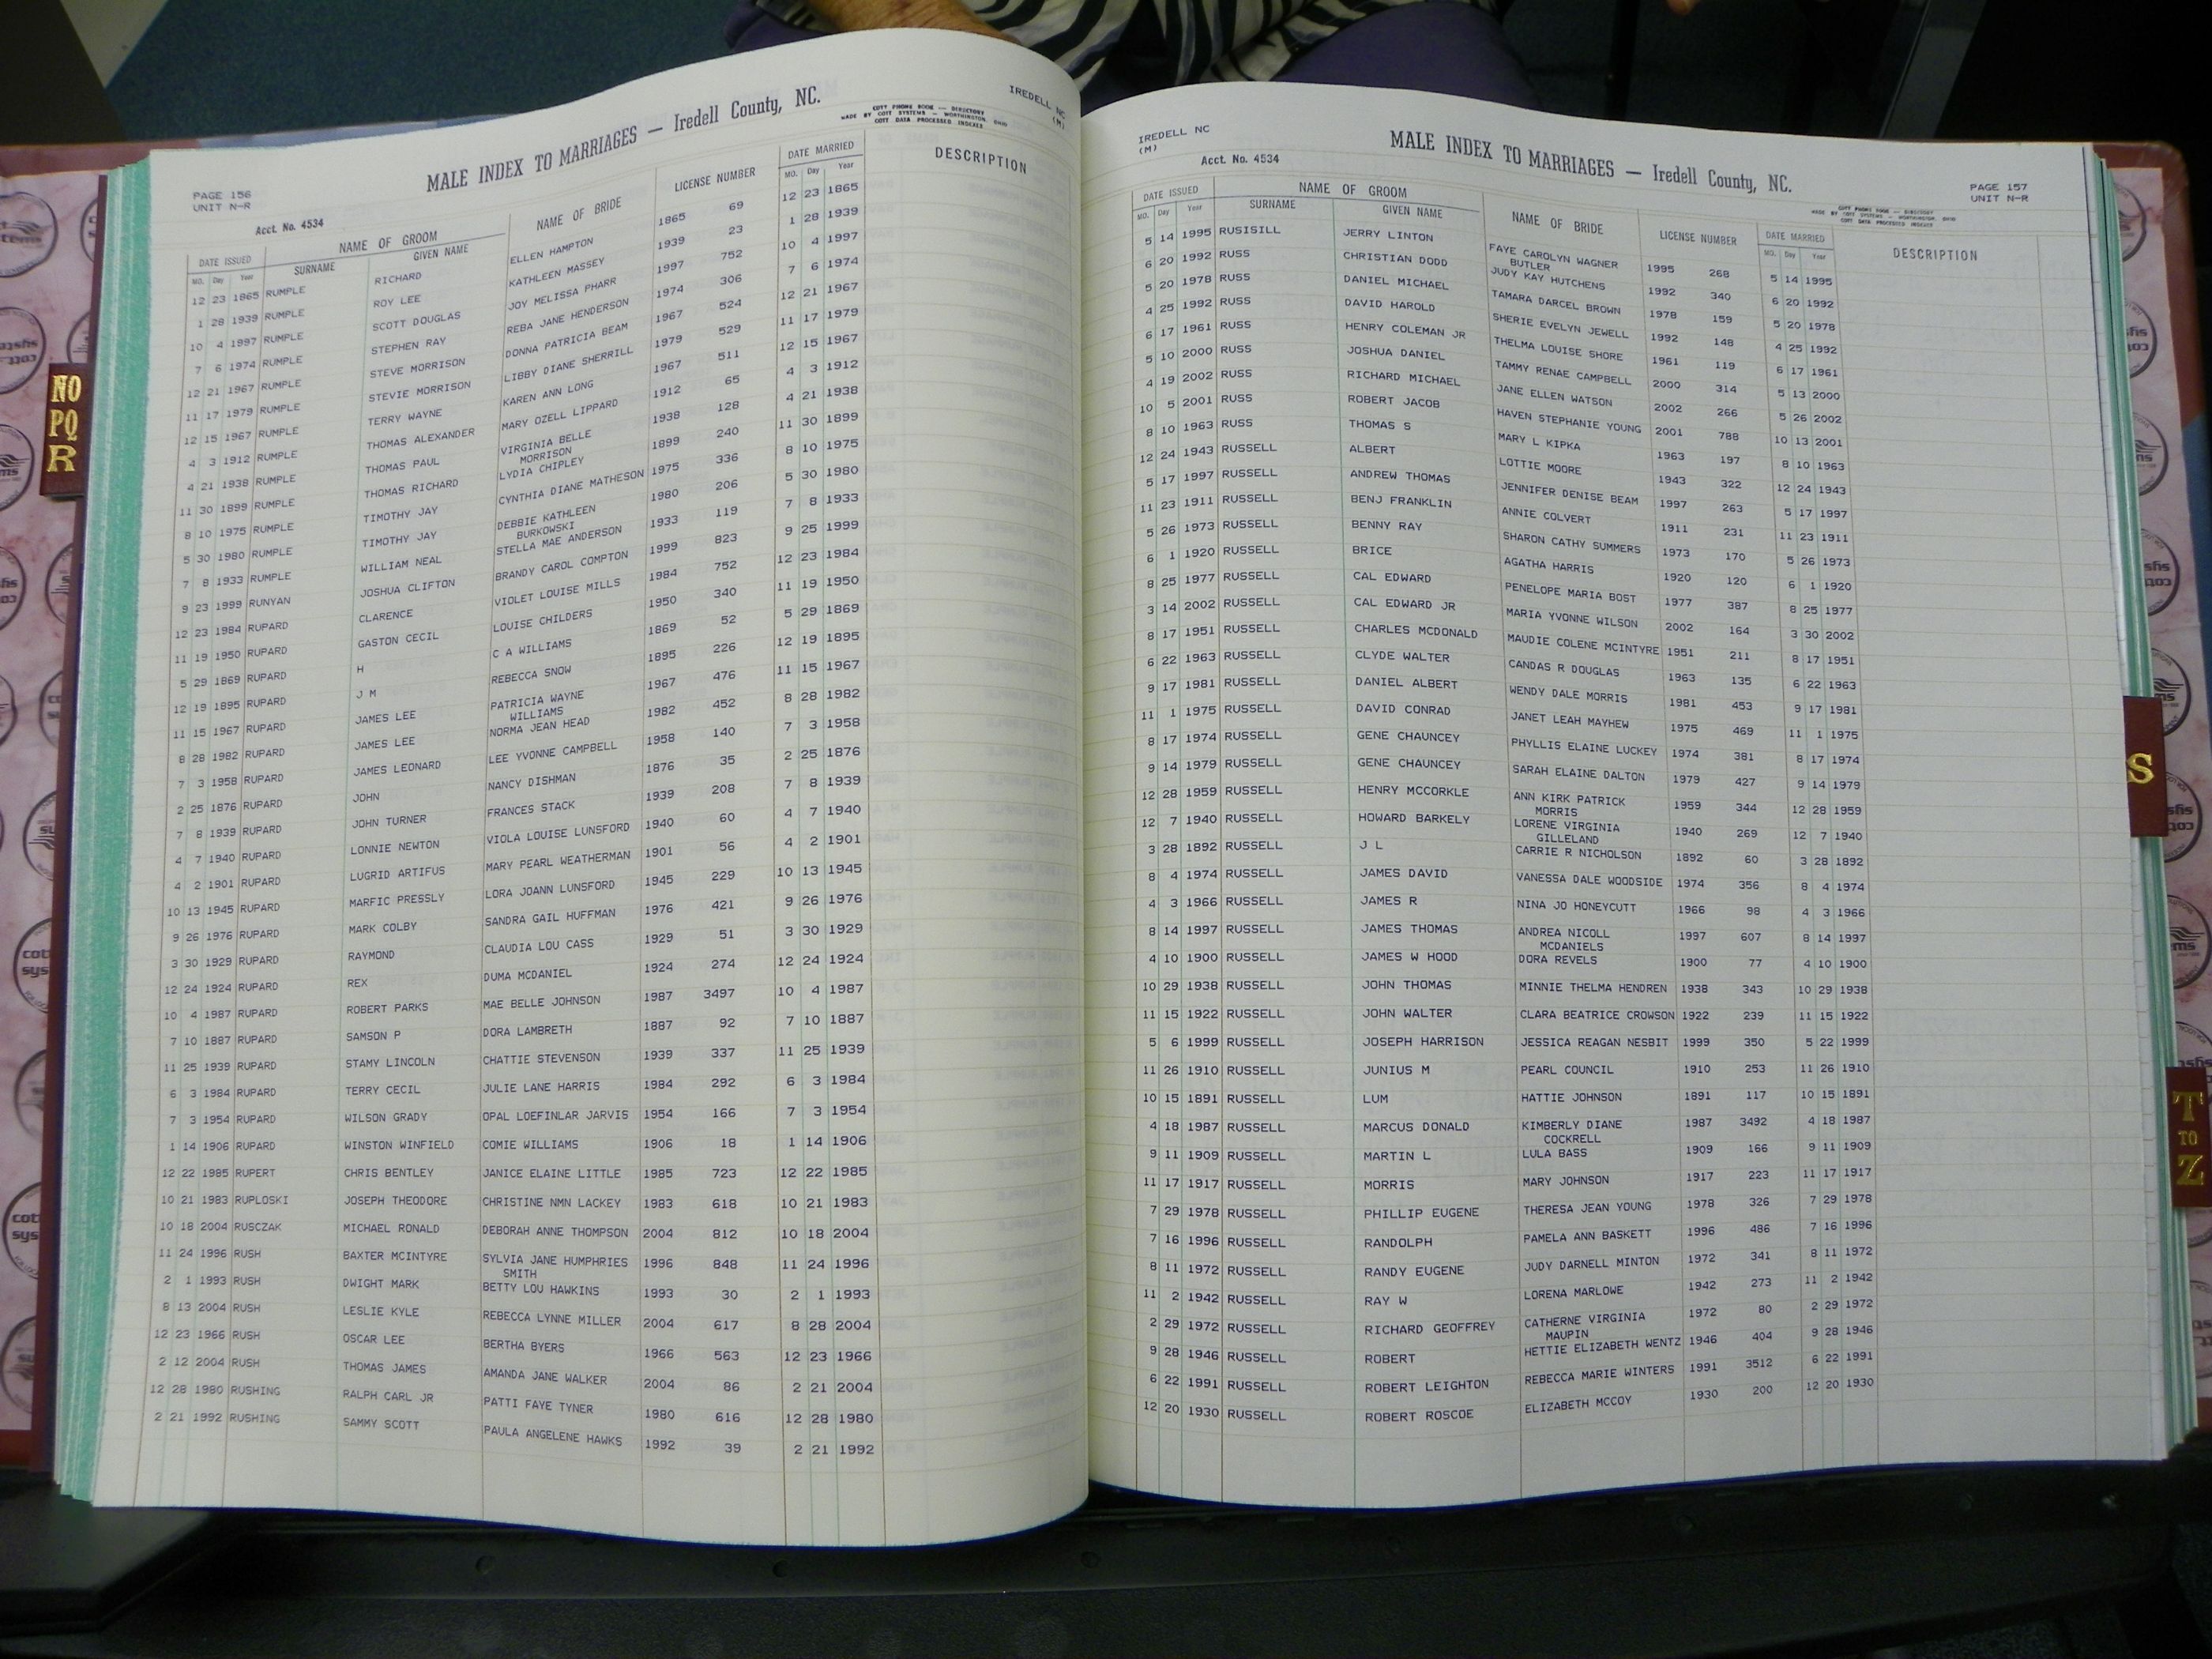 PAGE 156
UNIT N-R
MALE INDEX TO MARRIAGES — Iredell County, NC.
COTT PHONE BOOK — DIRECTORY
MADE BY COTT SYSTEMS — WORTHINGTON, OHIO
COTT DATA PROCESSED INDEXES
IREDELL NC
(M)
Acct. No. 4534
DATE ISSUED NAME OF GROOM NAME OF BRIDE LICENSE NUMBER DATE MARRIED DESCRIPTION
MO. Day Year SURNAME GIVEN NAME MO. Day Year
12 23 1865 RUMPLE RICHARD ELLEN HAMPTON 1865 69 12 23 1865
1 28 1939 RUMPLE ROY LEE KATHLEEN MASSEY 1939 23 1 28 1939
10 4 1997 RUMPLE SCOTT DOUGLAS JOY MELISSA PHARR 1997 752 10 4 1997
7 6 1974 RUMPLE STEPHEN RAY REBA JANE HENDERSON 1974 306 7 6 1974
12 21 1967 RUMPLE STEVE MORRISON DONNA PATRICIA BEAM 1967 524 12 21 1967
11 17 1979 RUMPLE STEVIE MORRISON LIBBY DIANE SHERRILL 1979 529 11 17 1979
12 15 1967 RUMPLE TERRY WAYNE KAREN ANN LONG 1967 511 12 15 1967
4 3 1912 RUMPLE THOMAS ALEXANDER MARY OZELL LIPPARD 1912 65 4 3 1912
4 21 1938 RUMPLE THOMAS PAUL VIRGINIA BELLE 1938 128 4 21 1938
MORRISON
11 30 1899 RUMPLE THOMAS RICHARD LYDIA CHIPLEY 1899 240 11 30 1899
8 10 1975 RUMPLE TIMOTHY JAY CYNTHIA DIANE MATHESON 1975 336 8 10 1975
5 30 1980 RUMPLE TIMOTHY JAY DEBBIE KATHLEEN 1980 206 5 30 1980
BURKOWSKI
7 8 1933 RUMPLE WILLIAM NEAL STELLA MAE ANDERSON 1933 119 7 8 1933
9 23 1999 RUNYAN JOSHUA CLIFTON BRANDY CAROL COMPTON 1999 823 9 25 1999
12 23 1984 RUPARD CLARENCE VIOLET LOUISE MILLS 1984 752 12 23 1984
11 19 1950 RUPARD GASTON CECIL LOUISE CHILDERS 1950 340 11 19 1950
5 29 1869 RUPARD H C A WILLIAMS 1869 52 5 29 1869
12 19 1895 RUPARD J M REBECCA SNOW 1895 226 12 19 1895
11 15 1967 RUPARD JAMES LEE PATRICIA WAYNE 1967 476 11 15 1967
WILLIAMS
8 28 1982 RUPARD JAMES LEE NORMA JEAN HEAD 1982 452 8 28 1982
7 3 1958 RUPARD JAMES LEONARD LEE YVONNE CAMPBELL 1958 140 7 3 1958
2 25 1876 RUPARD JOHN NANCY DISHMAN 1876 35 2 25 1876
7 8 1939 RUPARD JOHN TURNER FRANCES STACK 1939 208 7 8 1939
4 7 1940 RUPARD LONNIE NEWTON VIOLA LOUISE LUNSFORD 1940 60 4 7 1940
4 2 1901 RUPARD LUGRID ARTIFUS MARY PEARL WEATHERMAN 1901 56 4 2 1901
10 13 1945 RUPARD MARFIC PRESSLY LORA JOANN LUNSFORD 1945 229 10 13 1945
9 26 1976 RUPARD MARK COLBY SANDRA GAIL HUFFMAN 1976 421 9 26 1976
3 30 1929 RUPARD RAYMOND CLAUDIA LOU CASS 1929 51 3 30 1929
12 24 1924 RUPARD REX DUMA MCDANIEL 1924 274 12 24 1924
10 4 1987 RUPARD ROBERT PARKS MAE BELLE JOHNSON 1987 3497 10 4 1987
7 10 1887 RUPARD SAMSON P DORA LAMBRETH 1887 92 7 10 1887
11 25 1939 RUPARD STAMY LINCOLN CHATTIE STEVENSON 1939 337 11 25 1939
6 3 1984 RUPARD TERRY CECIL JULIE LANE HARRIS 1984 292 6 3 1984
7 3 1954 RUPARD WILSON GRADY OPAL LOEFINLAR JARVIS 1954 166 7 3 1954
1 14 1906 RUPARD WINSTON WINFIELD COMIE WILLIAMS 1906 18 1 14 1906
12 22 1985 RUPERT CHRIS BENTLEY JANICE ELAINE LITTLE 1985 723 12 22 1985
10 21 1983 RUPLOSKI JOSEPH THEODORE CHRISTINE NMN LACKEY 1983 618 10 21 1983
10 18 2004 RUSCZAK MICHAEL RONALD DEBORAH ANNE THOMPSON 2004 812 10 18 2004
11 24 1996 RUSH BAXTER MCINTYRE SYLVIA JANE HUMPHRIES 1996 848 11 24 1996
SMITH
2 1 1993 RUSH DWIGHT MARK BETTY LOU HAWKINS 1993 30 2 1 1993
8 13 2004 RUSH LESLIE KYLE REBECCA LYNNE MILLER 2004 617 8 28 2004
12 23 1966 RUSH OSCAR LEE BERTHA BYERS 1966 563 12 23 1966
2 12 2004 RUSH THOMAS JAMES AMANDA JANE WALKER 2004 86 2 21 2004
12 28 1980 RUSHING RALPH CARL JR PATTI FAYE TYNER 1980 616 12 28 1980
2 21 1992 RUSHING SAMMY SCOTT PAULA ANGELENE HAWKS 1992 39 2 21 1992
IREDELL NC
(M)
Acct. No. 4534
MALE INDEX TO MARRIAGES — Iredell County, NC.
PAGE 157
UNIT N-R
COTT PHONE BOOK — DIRECTORY
MADE BY COTT SYSTEMS — WORTHINGTON, OHIO
COTT DATA PROCESSED INDEXES
DATE ISSUED NAME OF GROOM NAME OF BRIDE LICENSE NUMBER DATE MARRIED DESCRIPTION
MO. Day Year SURNAME GIVEN NAME MO. Day Year
5 14 1995 RUSISILL JERRY LINTON FAYE CAROLYN WAGNER 1995 268 5 14 1995
BUTLER
6 20 1992 RUSS CHRISTIAN DODD JUDY KAY HUTCHENS 1992 340 6 20 1992
5 20 1978 RUSS DANIEL MICHAEL TAMARA DARCEL BROWN 1978 159 5 20 1978
4 25 1992 RUSS DAVID HAROLD SHERIE EVELYN JEWELL 1992 148 4 25 1992
6 17 1961 RUSS HENRY COLEMAN JR THELMA LOUISE SHORE 1961 119 6 17 1961
5 10 2000 RUSS JOSHUA DANIEL TAMMY RENAE CAMPBELL 2000 314 5 13 2000
4 19 2002 RUSS RICHARD MICHAEL JANE ELLEN WATSON 2002 266 5 26 2002
10 5 2001 RUSS ROBERT JACOB HAVEN STEPHANIE YOUNG 2001 788 10 13 2001
8 10 1963 RUSS THOMAS S MARY L KIPKA 1963 197 8 10 1963
12 24 1943 RUSSELL ALBERT LOTTIE MOORE 1943 322 12 24 1943
5 17 1997 RUSSELL ANDREW THOMAS JENNIFER DENISE BEAM 1997 263 5 17 1997
11 23 1911 RUSSELL BENJ FRANKLIN ANNIE COLVERT 1911 231 11 23 1911
5 26 1973 RUSSELL BENNY RAY SHARON CATHY SUMMERS 1973 170 5 26 1973
6 1 1920 RUSSELL BRICE AGATHA HARRIS 1920 120 6 1 1920
8 25 1977 RUSSELL CAL EDWARD PENELOPE MARIA BOST 1977 387 8 25 1977
3 14 2002 RUSSELL CAL EDWARD JR MARIA YVONNE WILSON 2002 164 3 30 2002
8 17 1951 RUSSELL CHARLES MCDONALD MAUDIE COLENE MCINTYRE 1951 211 8 17 1951
6 22 1963 RUSSELL CLYDE WALTER CANDAS R DOUGLAS 1963 135 6 22 1963
9 17 1981 RUSSELL DANIEL ALBERT WENDY DALE MORRIS 1981 453 9 17 1981
11 1 1975 RUSSELL DAVID CONRAD JANET LEAH MAYHEW 1975 469 11 1 1975
8 17 1974 RUSSELL GENE CHAUNCEY PHYLLIS ELAINE LUCKEY 1974 381 8 17 1974
9 14 1979 RUSSELL GENE CHAUNCEY SARAH ELAINE DALTON 1979 427 9 14 1979
12 28 1959 RUSSELL HENRY MCCORKLE ANN KIRK PATRICK 1959 344 12 28 1959
MORRIS
12 7 1940 RUSSELL HOWARD BARKELY LORENE VIRGINIA 1940 269 12 7 1940
GILLELAND
3 28 1892 RUSSELL J L CARRIE R NICHOLSON 1892 60 3 28 1892
8 4 1974 RUSSELL JAMES DAVID VANESSA DALE WOODSIDE 1974 356 8 4 1974
4 3 1966 RUSSELL JAMES R NINA JO HONEYCUTT 1966 98 4 3 1966
8 14 1997 RUSSELL JAMES THOMAS ANDREA NICOLL 1997 607 8 14 1997
MCDANIELS
4 10 1900 RUSSELL JAMES W HOOD DORA REVELS 1900 77 4 10 1900
10 29 1938 RUSSELL JOHN THOMAS MINNIE THELMA HENDREN 1938 343 10 29 1938
11 15 1922 RUSSELL JOHN WALTER CLARA BEATRICE CROWSON 1922 239 11 15 1922
5 6 1999 RUSSELL JOSEPH HARRISON JESSICA REAGAN NESBIT 1999 350 5 22 1999
11 26 1910 RUSSELL JUNIUS M PEARL COUNCIL 1910 253 11 26 1910
10 15 1891 RUSSELL LUM HATTIE JOHNSON 1891 117 10 15 1891
4 18 1987 RUSSELL MARCUS DONALD KIMBERLY DIANE 1987 3492 4 18 1987
COCKRELL
9 11 1909 RUSSELL MARTIN L LULA BASS 1909 166 9 11 1909
11 17 1917 RUSSELL MORRIS MARY JOHNSON 1917 223 11 17 1917
7 29 1978 RUSSELL PHILLIP EUGENE THERESA JEAN YOUNG 1978 326 7 29 1978
7 16 1996 RUSSELL RANDOLPH PAMELA ANN BASKETT 1996 486 7 16 1996
8 11 1972 RUSSELL RANDY EUGENE JUDY DARNELL MINTON 1972 341 8 11 1972
11 2 1942 RUSSELL RAY W LORENA MARLOWE 1942 273 11 2 1942
2 29 1972 RUSSELL RICHARD GEOFFREY CATHERNE VIRGINIA 1972 80 2 29 1972
MAUPIN
9 28 1946 RUSSELL ROBERT HETTIE ELIZABETH WENTZ 1946 404 9 28 1946
6 22 1991 RUSSELL ROBERT LEIGHTON REBECCA MARIE WINTERS 1991 3512 6 22 1991
12 20 1930 RUSSELL ROBERT ROSCOE ELIZABETH MCCOY 1930 200 12 20 1930
NO
PQ
R
S
T
TO
Z